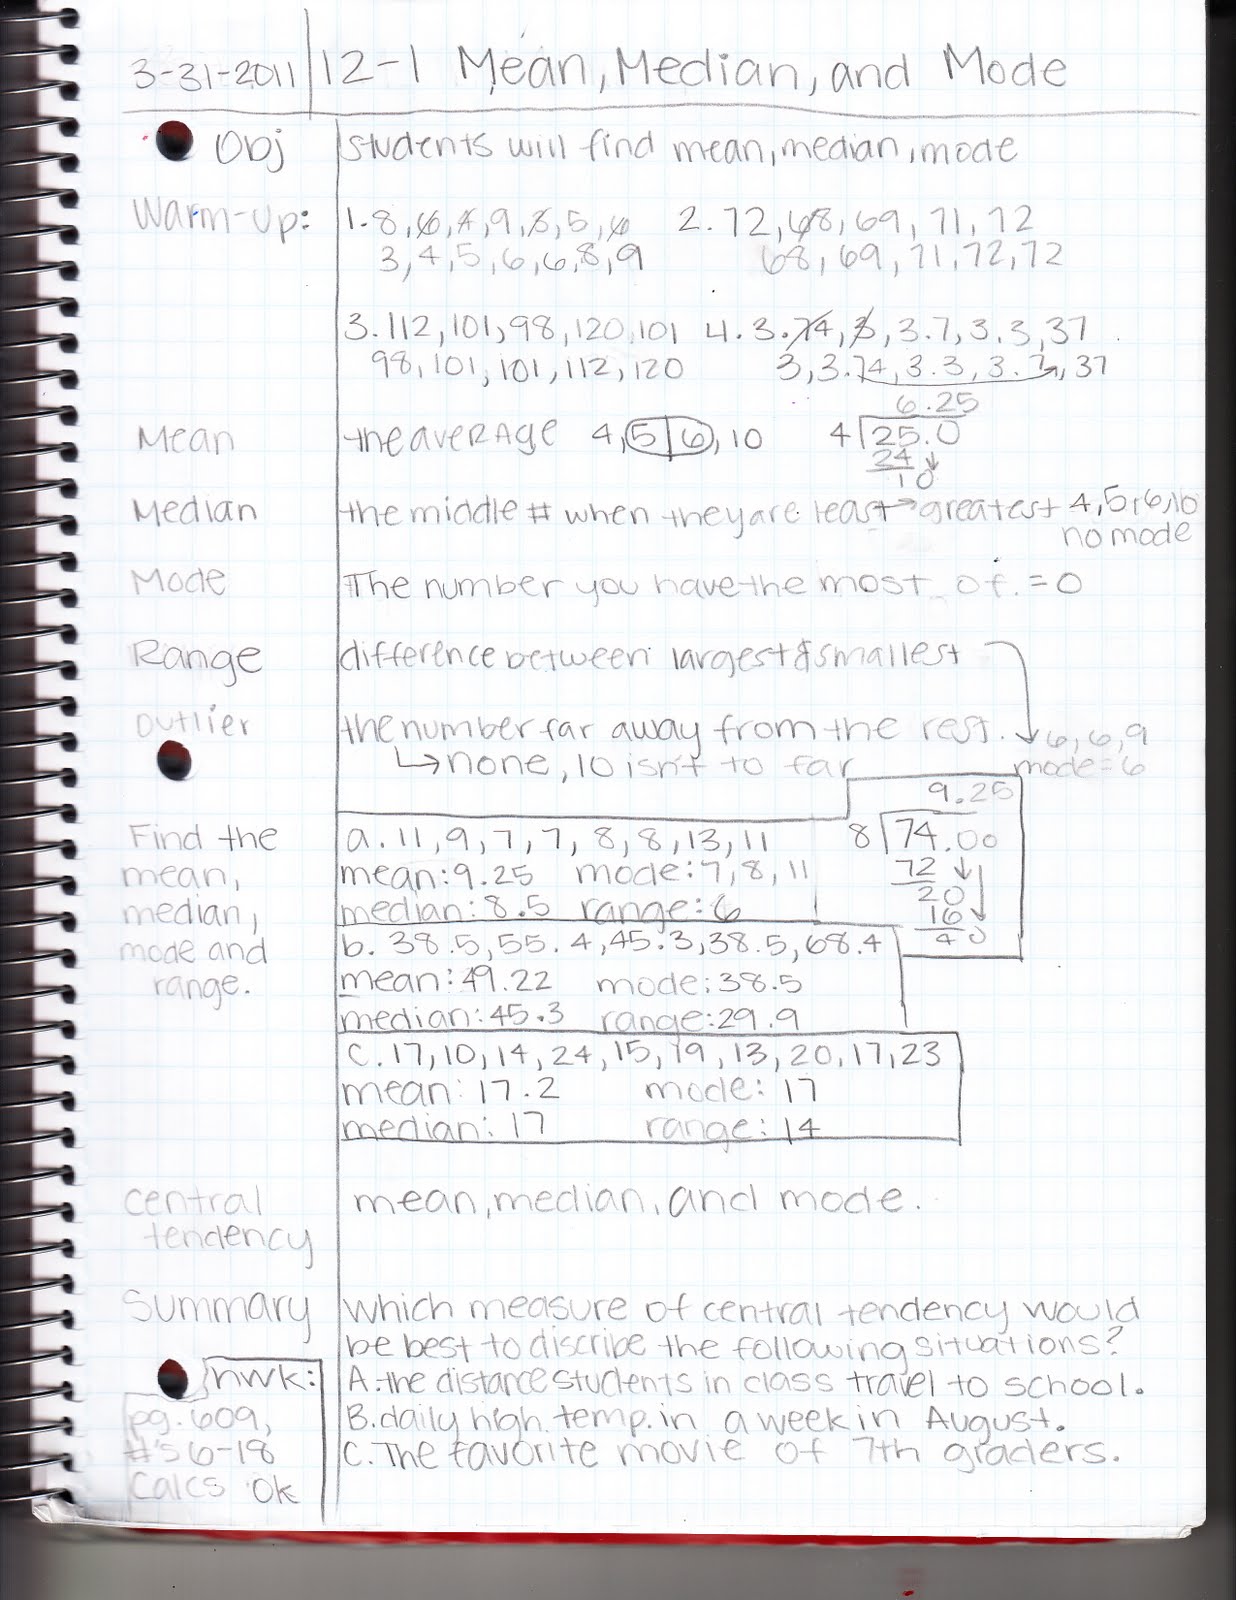 3-31-2011 12-1 Mean, Median, and Mode
Obj students will find mean, median, mode
Warm-up: 1. 8, 6, 4, 9, 3, 5, 6 2. 72, 68, 69, 71, 72
3, 4, 5, 6, 6, 8, 9 68, 69, 71, 72, 72
3. 112, 101, 98, 120, 101 4. 3.74, 3, 3.7, 3.3, 37
98, 101, 101, 112, 120 3, 3.74, 3.3, 3.7, 37
6.25
Mean the average 4, 5|6, 10 4 25.0
24
10
Median the middle # when they are least → greatest 4, 5, 6, 10
no mode
Mode The number you have the most of. = 0
Range difference between largest & smallest
outlier the number far away from the rest. 6, 6, 9
↳ none, 10 isn't to far mode = 6
9.25
Find the a. 11, 9, 7, 7, 8, 8, 13, 11 8 74.00
mean, mean: 9.25 mode: 7, 8, 11 72
20
median, median: 8.5 range: 6 16
40
mode and b. 38.5, 55.4, 45.3, 38.5, 68.4
range. mean: 49.22 mode: 38.5
median: 45.3 range: 29.9
c. 17, 10, 14, 24, 15, 19, 13, 20, 17, 23
mean: 17.2 mode: 17
median: 17 range: 14
central mean, median, and mode.
tendency
Summary which measure of central tendency would
be best to discribe the following situations?
hwk: A. the distance students in class travel to school.
pg. 609, B. daily high temp. in a week in August.
#'s 6-18 C. The favorite movie of 7th graders.
Calcs ok